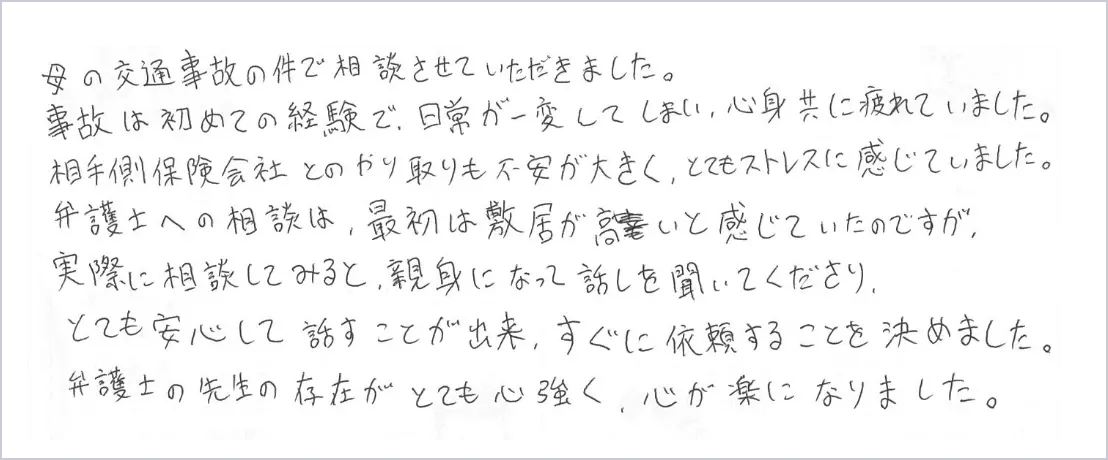 母の交通事故の件で相談させていただきました。
事故は初めての経験で、日常が一変してしまい、心身共に疲れていました。
相手側保険会社とのやり取りも不安が大きく、とてもストレスに感じていました。
弁護士への相談は、最初は敷居が高いと感じていたのですが、
実際に相談してみると、親身になって話しを聞いてくださり、
とても安心して話すことが出来、すぐに依頼することを決めました。
弁護士の先生の存在がとても心強く、心が楽になりました。